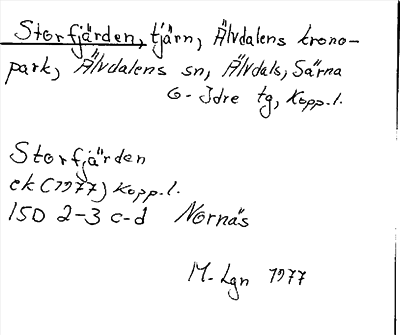 Storfjärden, tjärn, Älvdalens krono-
park, Älvdalens sn, Älvdals, Särna
o. Idre tg, Kopp.l.
Storfjärden
ek (1977) Kopp.l.
15D 2-3 c-d Nornäs
M. Lgn 1977